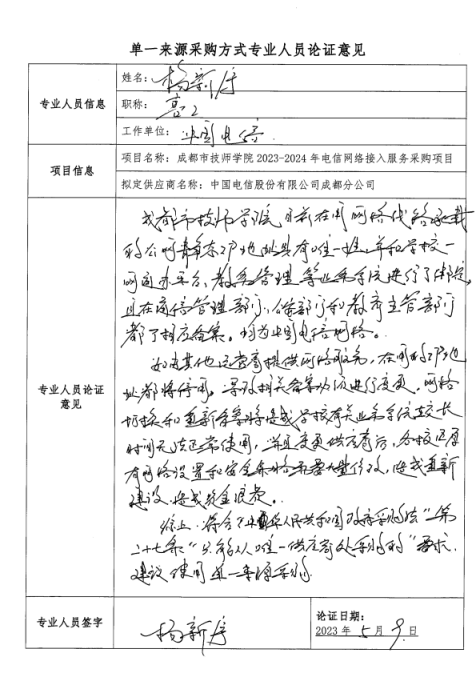 单一来源采购方式专业人员论证意见
专业人员信息
姓名：杨新序
职称：高工
工作单位：中国电信
项目信息
项目名称：成都市技师学院 2023-2024 年电信网络接入服务采购项目
拟定供应商名称：中国电信股份有限公司成都分公司
专业人员论证
意见
成都市技师学院目前在用网络
的公网 IP 地址具有唯一性，并和学校一
网通办平台、教务管理等业务系统进行了绑定，
且在 管理部门、公安部门和教育主管部门
都了相应备案。均为中国电信网络。
如由其他运营商提供网络服务，在用的 IP 地
址都将停用。 相关备案 进行变更，网络
切换和重新备案将造成学校有关业务系统较长
时间无法正常使用，并且变更供应商后，学校还有
网络设置和安全 配置 修改，造成重新
建设，造成资金浪费。
综上，符合《中华人民共和国政府采购法》第
二十七条“只能从唯一供应商处采购的”要求，
建议使用单一来源采购
专业人员签字
杨新序
论证日期：
2023 年 5 月 9 日